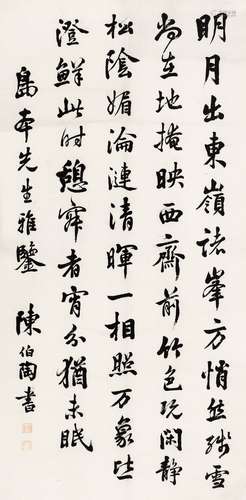 明月出東嶺諸峯方悄然殘雪
尚在地掩映西齋前竹色既閑靜
松陰媚淪漣清暉一相照万象皆
澄鮮此時憩寐者宵分猶未眠
島本先生雅鑒 陳伯陶書